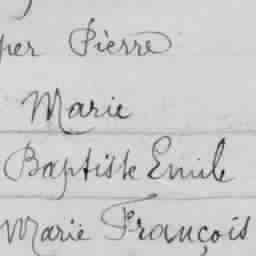 per Pierre
Marie
Baptiste Emile
Marie François